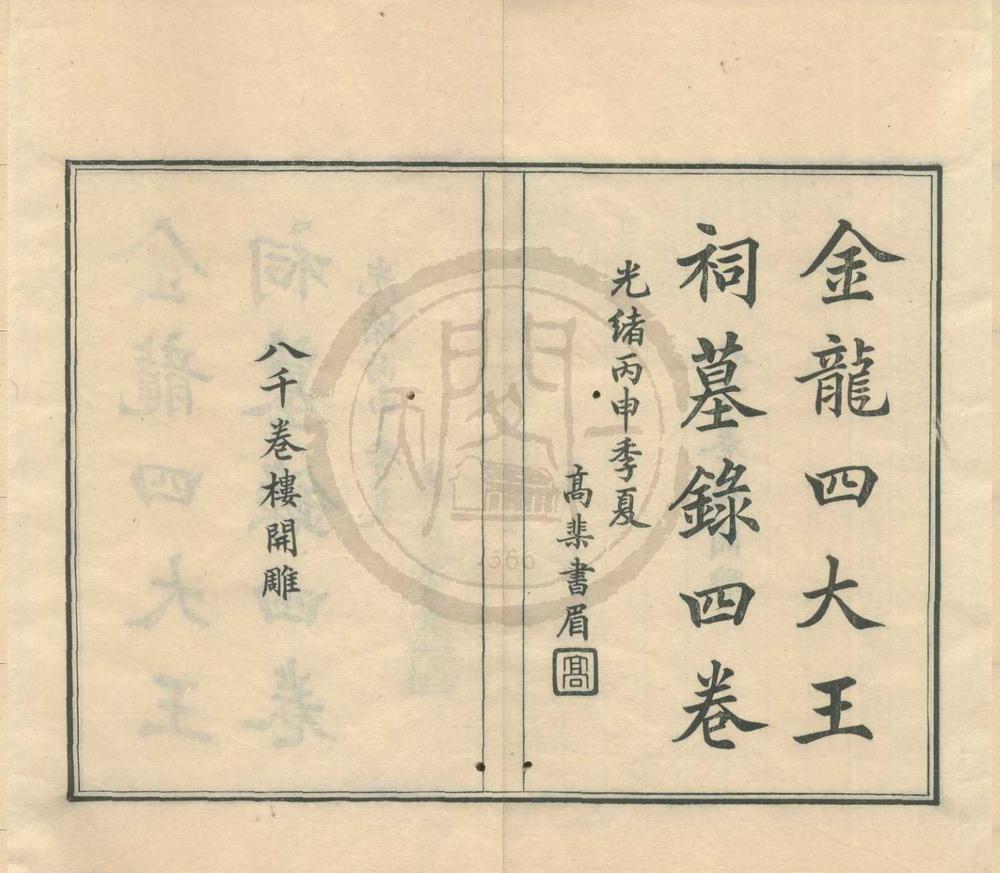 金龍四大王
祠墓錄四卷
光緒丙申季夏
高棐書眉
高
八千卷樓開雕
天一閣
1566